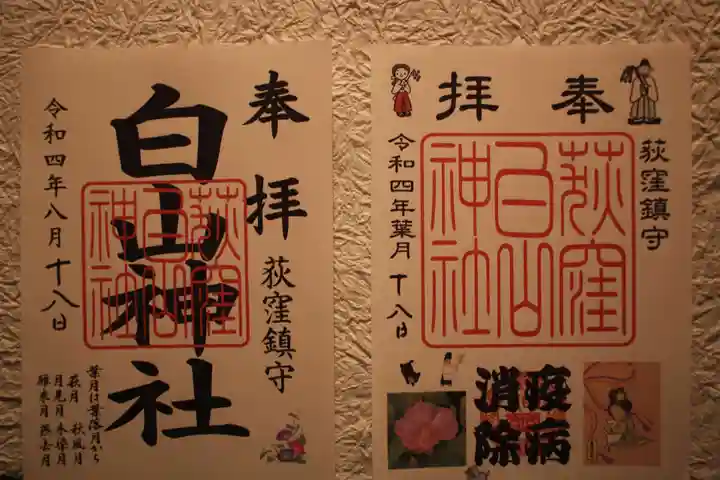 奉拝
荻窪鎮守
白山神社
荻窪
白山
神社
令和四年八月十八日
葉月は葉落月から
萩月 秋風月
月見月 木染月
雁来月 燕去月
奉拝
荻窪鎮守
荻窪
白山
神社
令和四年葉月十八日
疫病
消除